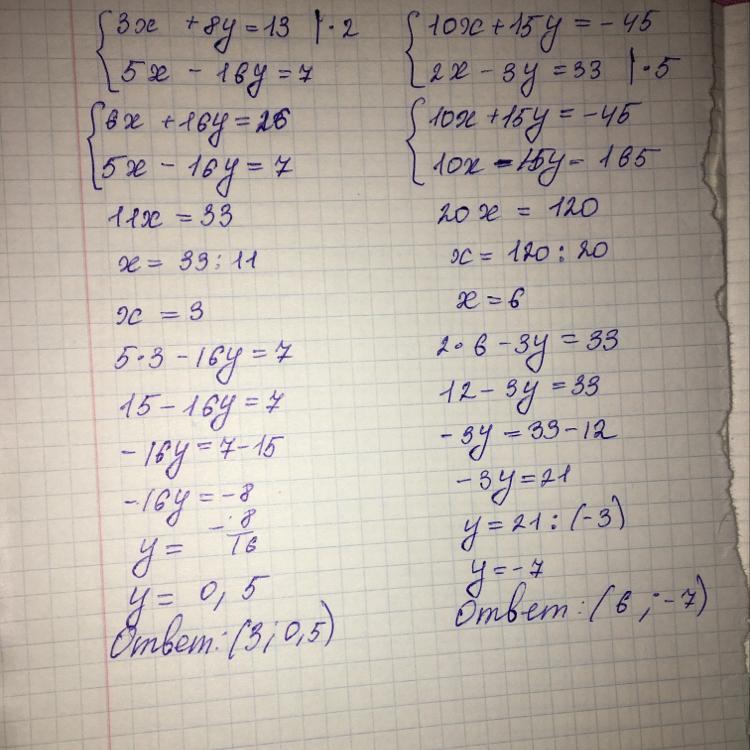 3x + 8y = 13 | · 2
5x - 16y = 7
6x + 16y = 26
5x - 16y = 7
11x = 33
x = 33 : 11
x = 3
5 · 3 - 16y = 7
15 - 16y = 7
-16y = 7 - 15
-16y = -8
y = -8/16
y = 0,5
Ответ: (3; 0,5)
10x + 15y = -45
2x - 3y = 33 | · 5
10x + 15y = -45
10x - 15y = 165
20x = 120
x = 120 : 20
x = 6
2 · 6 - 3y = 33
12 - 3y = 33
-3y = 33 - 12
-3y = 21
y = 21 : (-3)
y = -7
Ответ: (6; -7)